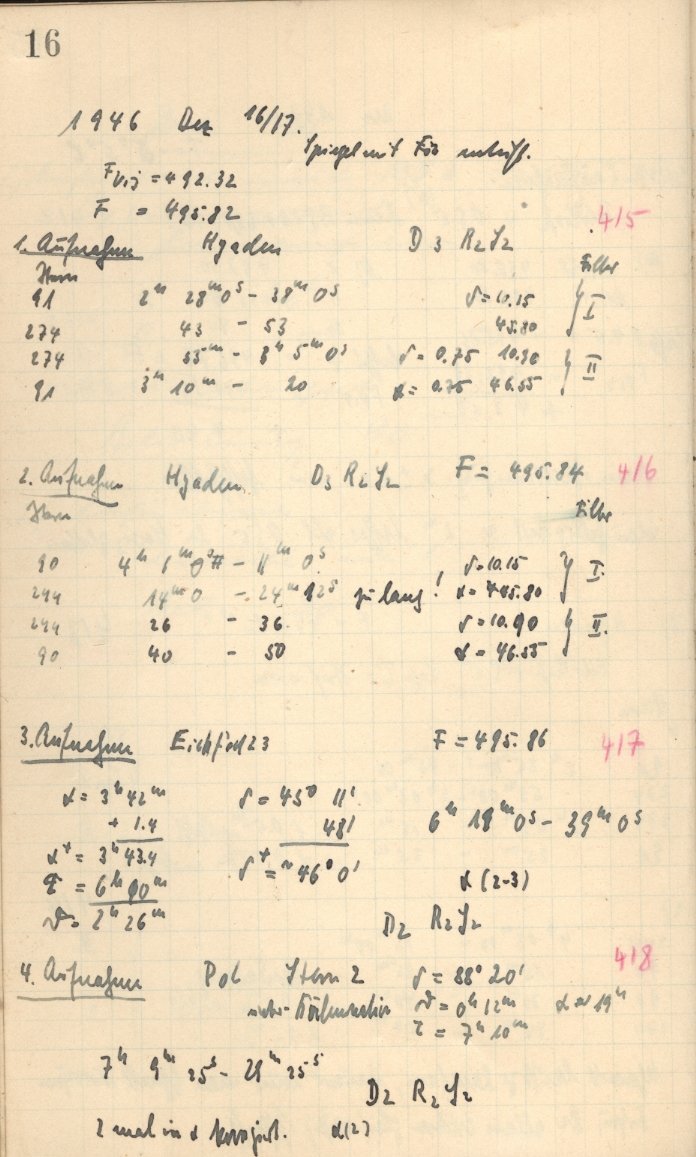 16
1946 Dez 16/17.
Spiegel mit Fön
F = 492.32
F = 495.82
415
1. Aufnahme Hyaden D3 R2 S2
Stern Filter
91 2h 28m 0s - 38m 0s δ = 10.15 } I
274 43 - 53 45.80
274 55m - 3h 5m 0s δ = 0.75 10.90 } II
91 3h 10m - 20 α = 0.75 46.55
2. Aufnahme Hyaden D3 R2 S2 F = 495.84 416
Stern Filter
90 4h 1m 0s - 11m 0s δ = 10.15 } I.
244 14m 0 - 24m 12s zu lang! α = 45.80
244 26 - 36 δ = 10.90 } II.
90 40 - 50 α = 46.55
3. Aufnahme Eichfeld 23 F = 495.86 417
α = 3h 42m δ = 45° 11'
+ 1.4 48'
6h 19m 0s - 39m 0s
α* = 3h 43.4 δ* = ~46° 0'
τ = 6h 10m α (2-3)
ϑ = 2h 26m
D2 R2 S2
418
4. Aufnahme Pol Stern 2 δ = 88° 20'
ϑ = 0h 12m α ≈ 19h
τ = 7h 10m
7h 9m 25s - 29m 25s
D2 R2 S2
2 mal in α korrigiert. α(2)